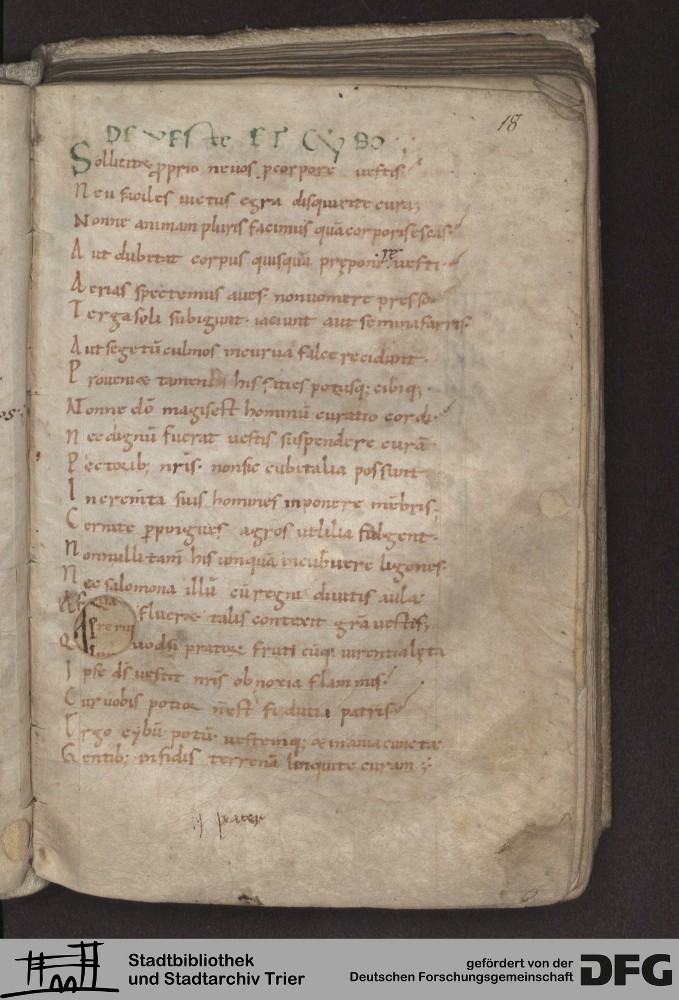 18
DE VESTE ET CYBO
Sollicitet proprio ne uos p corpore uestis
Neu faciles uictus egra disquirite cura;
Nonne animam pluris facimus quã corporis escas
Aut dubitat corpus quisquã prępone re uesti
Aerias spectemus aues non uomere presso
Terga soli subigunt iaciunt aut semina farris
Aut segetũ culmos incurua falce recidunt
Proueniæ tamen his faties potusq; cibiq;
Nonne dõ magis est hominũ curatio cordi
Nec dignũ fuerat uestis suspendere curã
Pectorib; nrĩs. non sic cubitalia possunt
Incremta suis homines inponere mẽbris;
Cernite p pingues agros ut lilia fulgent.
Non nulli tam his unquã incubuere ligones.
Nec salomona illũ cũ regni diuitis aula
Afflueræ talis contexit grã uestis;
Quod si prata fruti cũq; uirentia lęta
Ipse ds uestit nrĩs obnoxia flammis
Cur uobis potior nẽst fiducia patris
Ergo cybũ potũ uestemq; & inania cuncta
Gentib; infidis terrenã linquite curam
pater
Stadtbibliothek
und Stadtarchiv Trier
gefördert von der
Deutschen Forschungsgemeinschaft
DFG